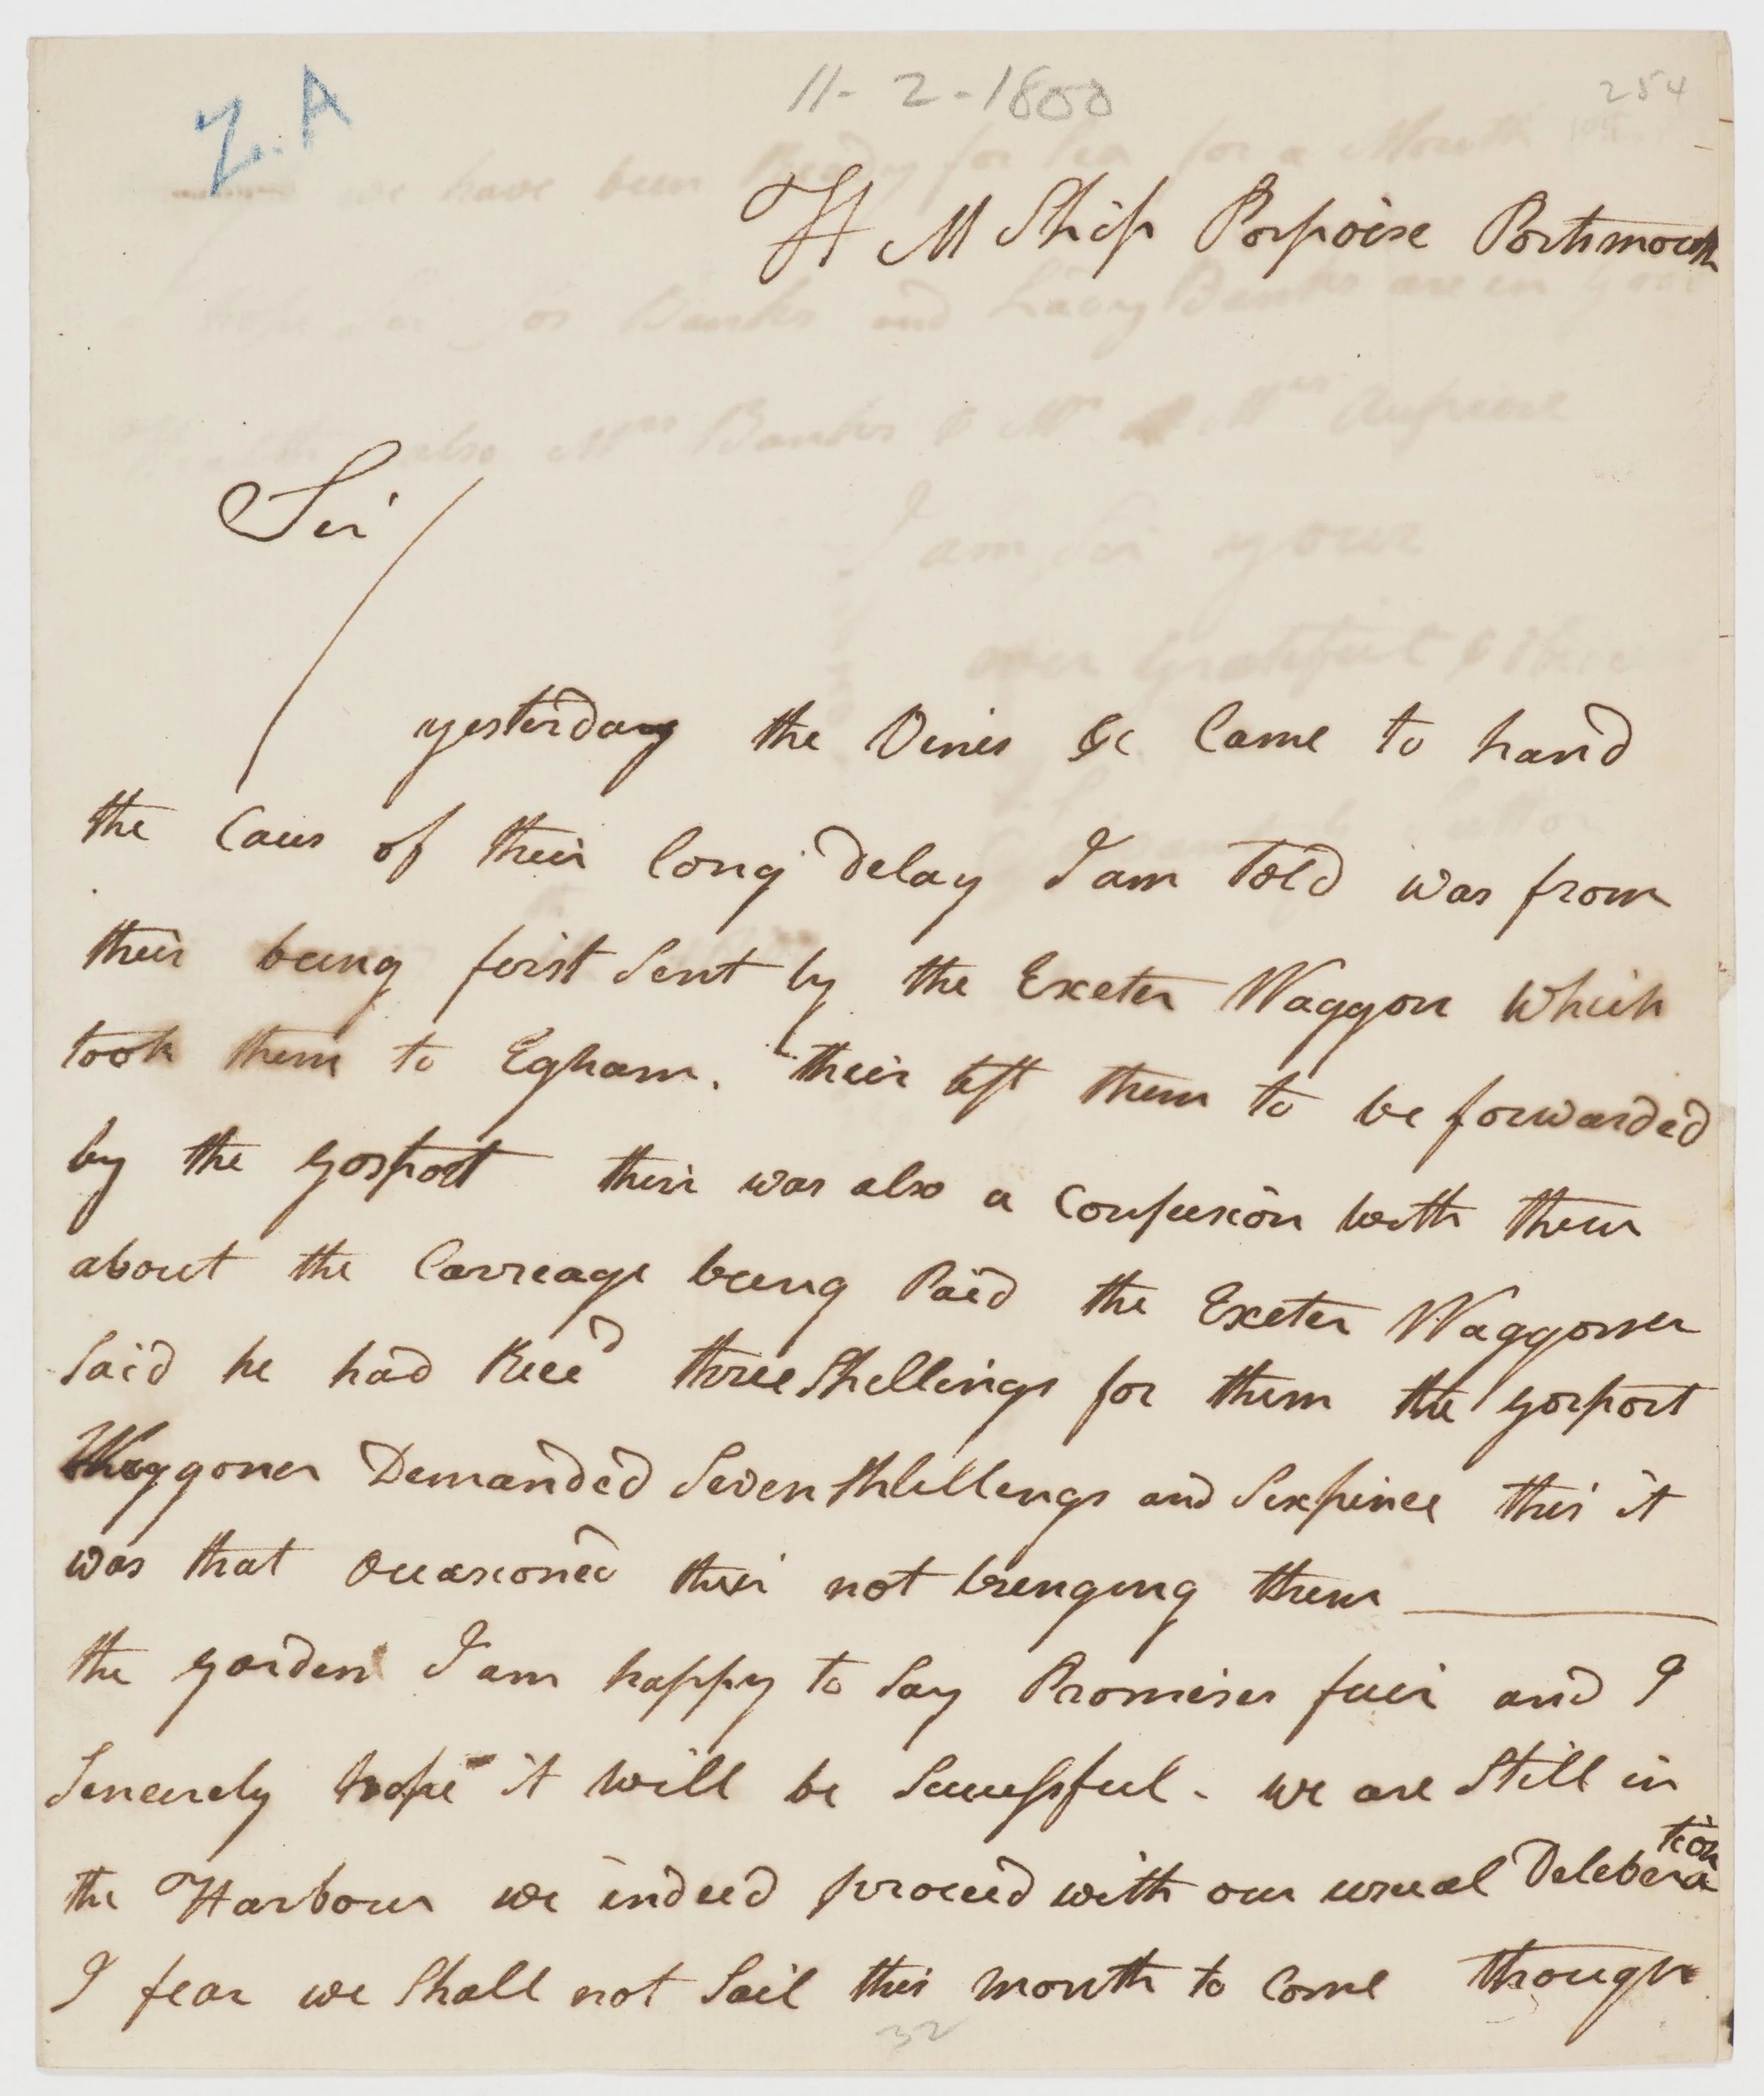 Z.A
11-2-1800
254
H M Ship Porpoise Portsmouth
Sir
yesterday the Vines &c Came to hand
the Caus of their long Delay I am Told was from
their being first Sent by the Exeter Waggon which
took them to Egham. their left them to be forwarded
by the gosport their was also a Confusion with them
about the Carreage being Paid the Exeter Waggoner
Said he had Rece^d three Shillings for them the gosport
Waggoner Demanded Seven Shlillings and Sixpince this it
was that occasioned their not bringing them
the garden I am happy to Say Promises fair and I
Sincerely hope it will be Sucessful - we are Still in
the Harbour we indeed proceed with our usual Delebera
tion
I fear we Shall not Sail this month to Come though
32